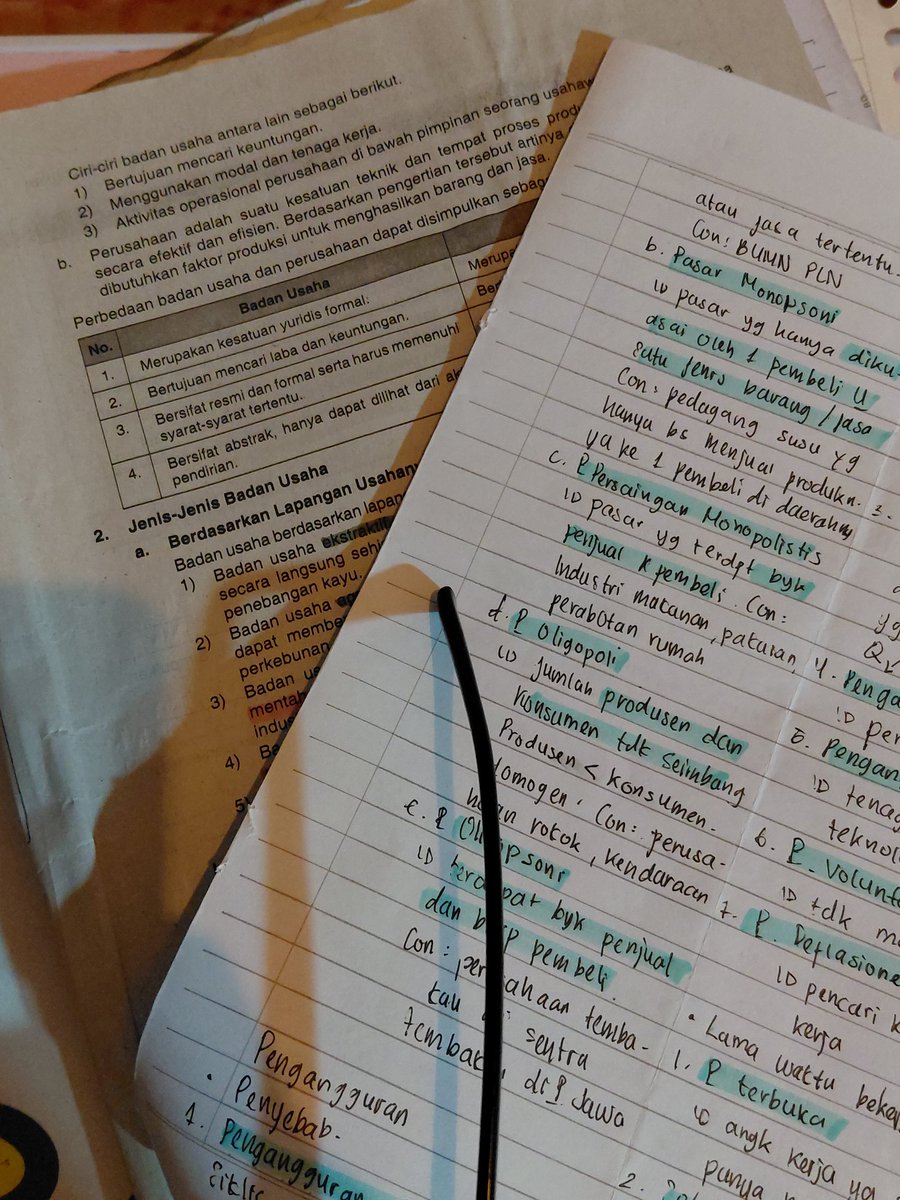 Ciri-ciri badan usaha antara lain sebagai berikut.
1) Bertujuan mencari keuntungan.
2) Menggunakan modal dan tenaga kerja.
3) Aktivitas operasional perusahaan di bawah pimpinan seorang
b. Perusahaan adalah suatu kesatuan teknik dan tempat proses
secara efektif dan efisien. Berdasarkan pengertian tersebut artinya
dibutuhkan faktor produksi untuk menghasilkan barang dan jasa.
Perbedaan badan usaha dan perusahaan dapat disimpulkan
No. Badan Usaha
1. Merupakan kesatuan yuridis formal.
2. Bertujuan mencari laba dan keuntungan.
3. Bersifat resmi dan formal serta harus memenuhi
syarat-syarat tertentu.
4. Bersifat abstrak, hanya dapat dilihat dari
pendirian.
2. Jenis-Jenis Badan Usaha
a. Berdasarkan Lapangan
Badan usaha berdasarkan
1) Badan usaha ekstraktif
secara langsung
penebangan kayu.
2) Badan usaha
dapat
perkebunan
3) Badan
4)
5)
atau jasa tertentu.
Con: BUMN PLN
b. Pasar Monopsoni
pasar yg hanya diku-
asai oleh 1 pembeli U
satu jenis barang/jasa
Con: pedagang susu yg
hanya bs menjual produkn.
ya ke 1 pembeli di daerahny
c. P Persaingan Monopolistis
pasar yg terdpt byk
penjual & pembeli. Con:
Industri makanan, pakaian,
perabotan rumah
d. P Oligopoli
jumlah produsen dan
konsumen tdk seimbang
Produsen < konsumen.
Homogen. Con: perusa-
rokok, kendaraan
e. P
byk penjual
dan pembeli.
Con: temba-
kau sentra
di P. Jawa
Pengangguran
• Penyebab.
1. Pengangguran
2.
yg
4.
5.
teknol
6. P. Volunt
tdk
7. P. Deflasione
pencari k
kerja
• Lama waktu beker
1. P terbuka
angk kerja yg
punya
2.